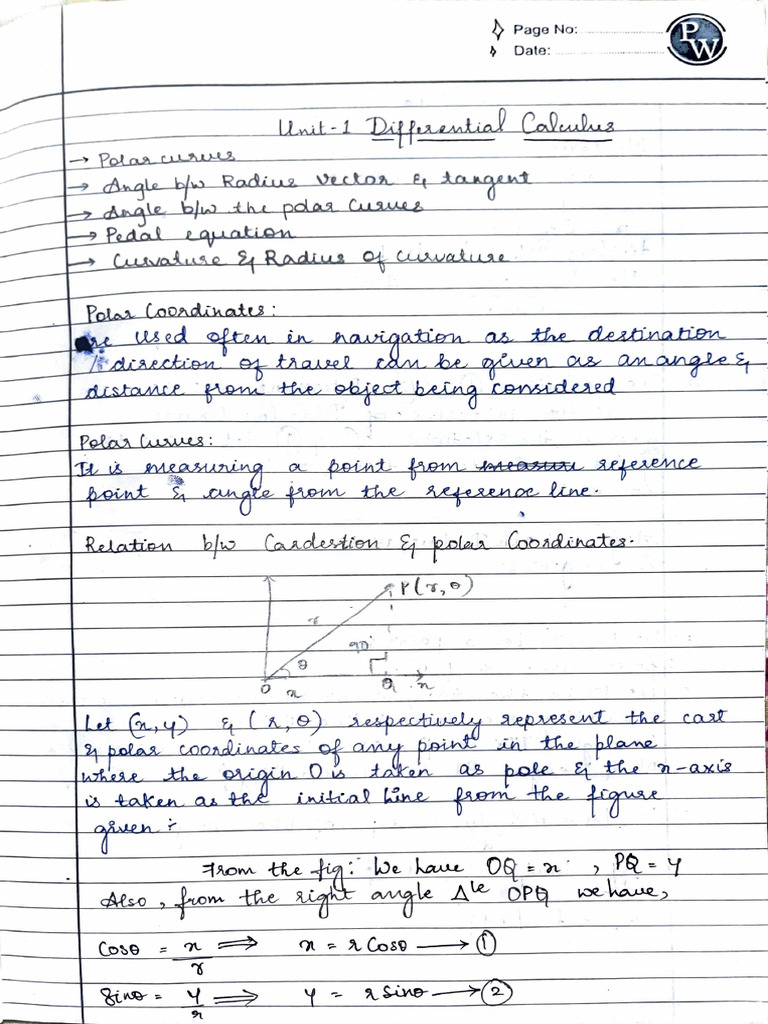 Page No:
PW
Date:
Unit-1 Differential Calculus
→ Polar curves
→ Angle b/w Radius vector & tangent
→ Angle b/w the polar curves
→ Pedal equation
→ Curvature & Radius of curvature
Polar Coordinates:
are used often in navigation as the destination
/ direction of travel can be given as an angle &
distance from the object being considered
Polar Curves:
It is measuring a point from measuri reference
point & angle from the reference line.
Relation b/w Cardestion & polar Coordinates.
P(r, θ)
r
90°
θ
O x Q x
Let (x,y) & (r,θ) respectively represent the cart
& polar coordinates of any point in the plane
where the origin O is taken as pole & the x-axis
is taken as the initial line from the figure
given :-
From the fig: We have OQ = x , PQ = y
Also, from the right angle Δle OPQ we have,
Cosθ = x/r ⟹ x = r Cosθ → ①
Sinθ = y/r ⟹ y = r Sinθ → ②